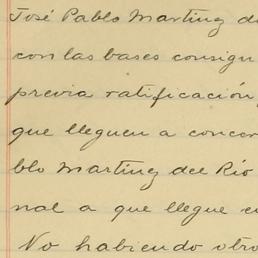 José Pablo Martínz d
con las bases consign
previa ratificación,
que lleguen a concer
blo Martinz del Río
nal a que llegue e
No habiendo otro